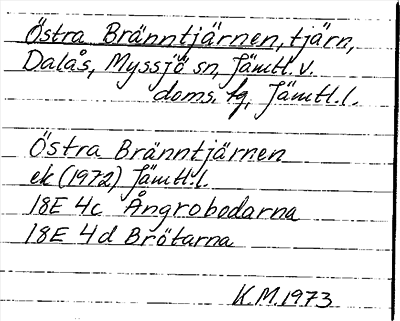 Östra Bränntjärnen, tjärn,
Dalås, Myssjö sn, Jämtl. v.
doms. tg, Jämtl. l.
Östra Bränntjärnen
ek (1972) Jämtl. l.
18E 4c Ångrobodarna
18E 4d Brötarna
K.M. 1973